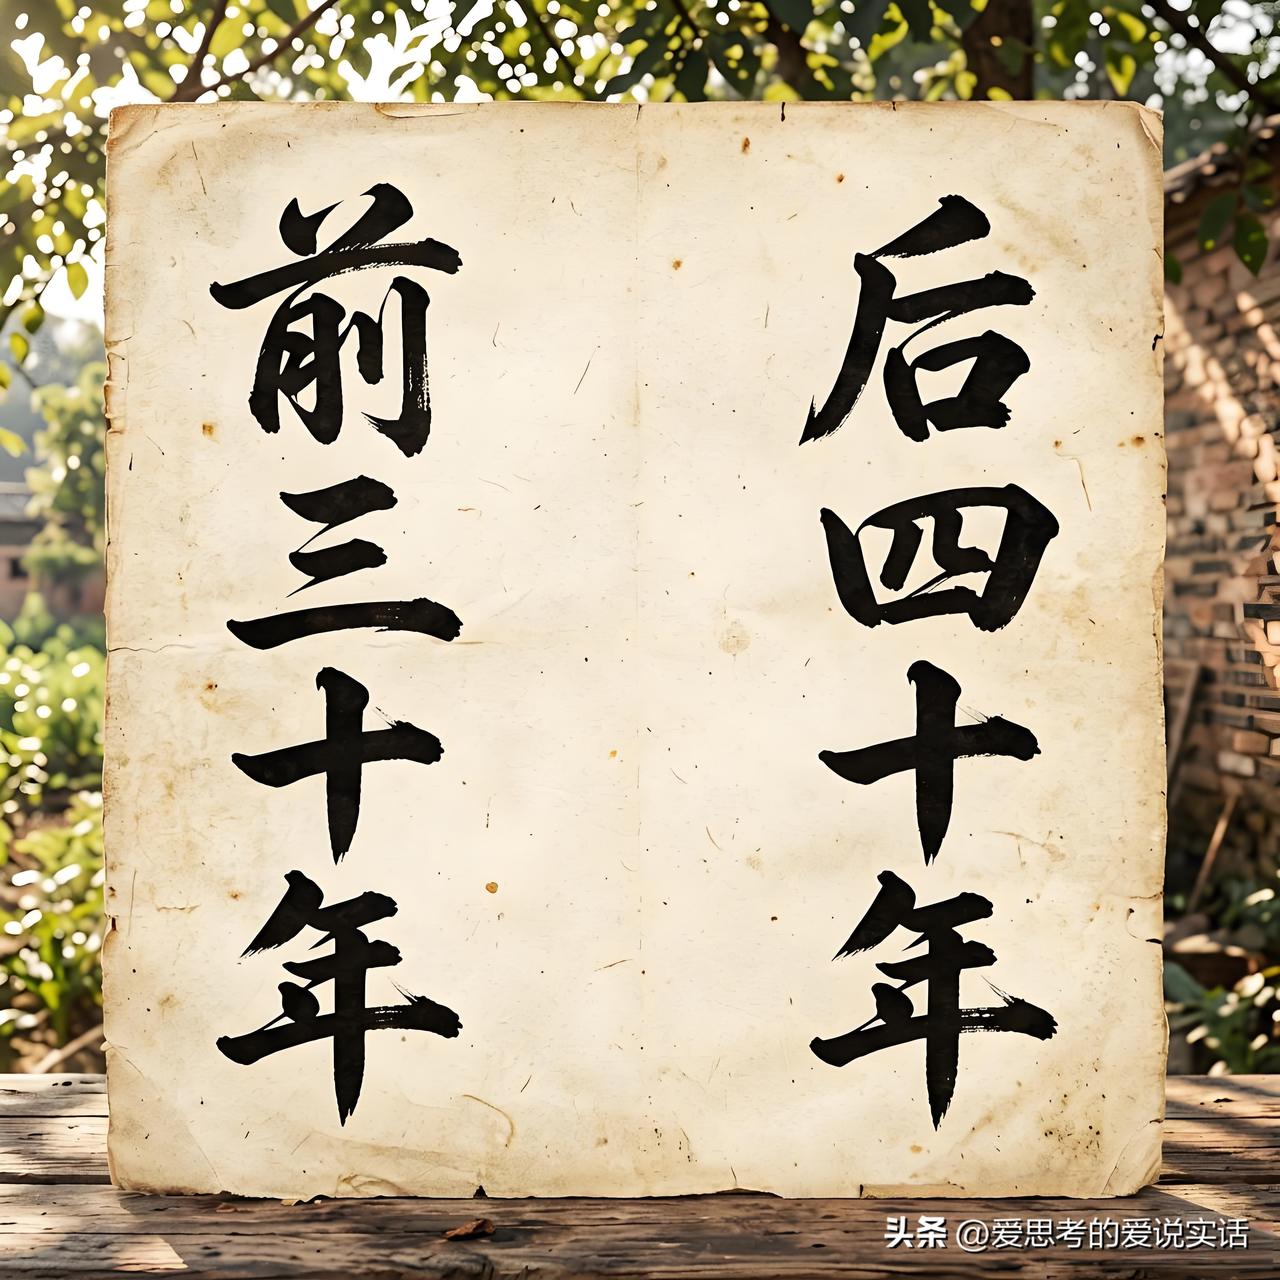 前三十年
后四十年
头条 @爱思考的爱说实话